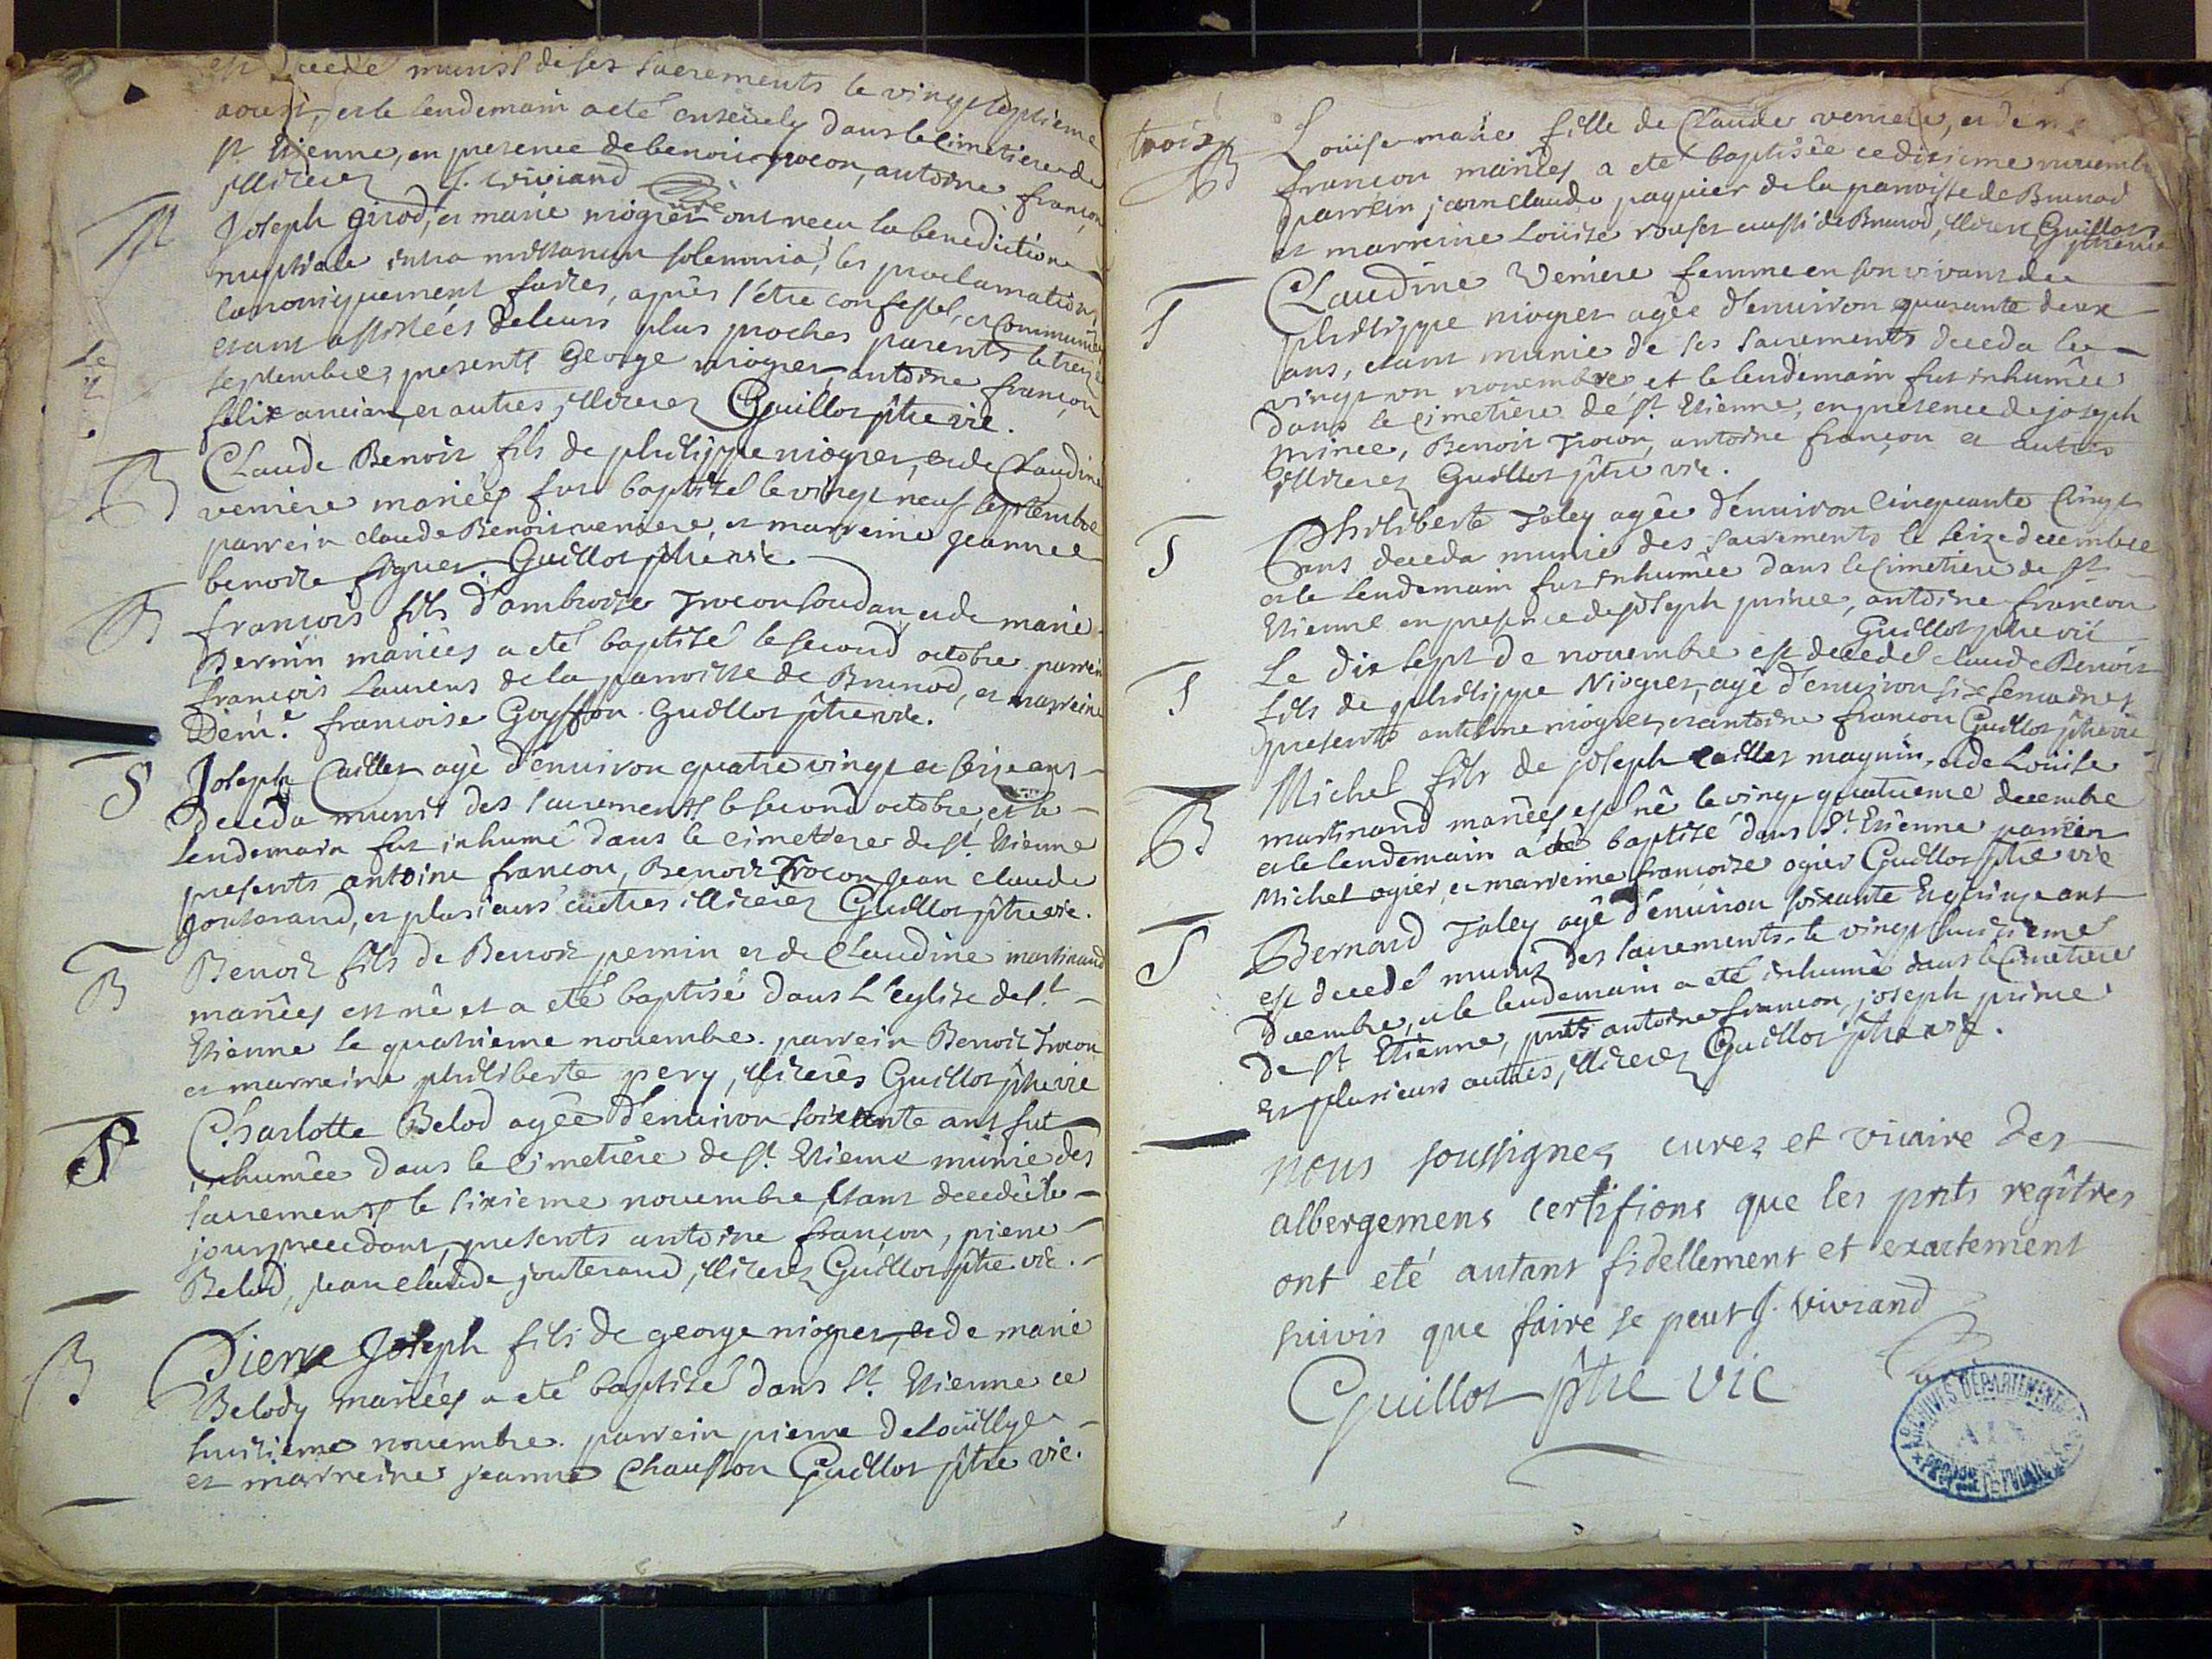 est décédé munis de ses sacrements le vingt septieme
aoust, et le lendemain a eté enseuely dans le cimetiere de
st Etienne, en presence de benoit trocon, antoine françon,
illiterez J. Viviand curé
M
Joseph girod, et marie niogret ont recu la benediction
nuptiale intra missarum solemnia, les proclamations
canoniquement faites, après s'être confessés, et communiés
etant assistées de leurs plus proches parents le treize
septembre, presents George niogret, antoine françon
felix ancian, et autres, illiterez Guillot ptre vic.
B
Claude Benoit fils de philippe niogret, et de Claudine
veniere mariées fut baptisé le vingt neuf septembre
parrein claude Benoit veniere et marreine jeanne
benoite Guillot ptre vic.
B
francois fils d'ambroise Trocon soudan, et de marie
Pernin mariées a eté baptisé le second octobre parrein
francois Laurens de la parroisse de Brenod, et marreine
Dem.e francoise Goyffon Guillot ptre vic.
S
Joseph Cailler agé d'enuiron quatre vingt et seize ans
deceda munis des sacrements le second octobre, et le
lendemain fut inhumé dans le cimetiere de st. Etienne
presents antoine francon, Benoit Trocon, Jean claude
jouterand, et plusieurs autres illiterez Guillot ptre vic.
B
Benoit fils de Benoit pernin et de Claudine martinand
mariées est né et a eté baptisé dans L'eglise de st.
Etienne le quatrieme nouembre. parrein Benoit Trocon
et marreine philiberte pery, illiterés Guillot ptre vic
S
Charlotte Belod agée d'enuiron soixante ans fut
inhumée dans le cimetiere de st. Etienne munie des
sacrements le sixieme nouembre, etant decedée le
jour precedant, presents antoine françon, pierre
Belod, jean claude jouterand, illiterez Guillot ptre vic.
B
Pierre Joseph fils de george niogret, et de marie
Belody mariées a eté baptisé dans st. Etienne ce
huitieme nouembre. parrein pierre delouillye
et marreine jeanne Chausson Guillot ptre vic.
trois
B
Loüise marie fille de Claude veniere, et de
francon mariées a eté baptisée ce dixieme nouembre
parrein jean claude paquier de la parroisse de Brenod
et marreine Loüise rouset aussi de Brenod, illitere Guillot
ptre vic
S
Claudine Veniere femme en son vivant de
philippe niogret agée d'enuiron quarante deux
ans, etant munie de ses sacrements deceda le
vingt un nouembre, et le lendemain fut inhumée
dans le cimetiere de st. Etienne, en presence de joseph
prince, Benoit Trocon, antoine françon et autres
illiterez Guillot ptre vic.
S
Philiberte Taley agée d'enuiron Cinquante Cinq
ans deceda munie des sacrements le seize decembre
et le lendemain fut inhumée dans le cimetiere de st
Etienne en presence de joseph prince, antoine francon
Guillot ptre vic
S
Le dix sept de nouembre est decedé claude Benoit
fils de philippe Niogret, agé d'enuiron six semaines
presents antoine niogret, et antoine francon Guillot ptre vic
B
Michel fils de joseph cailler magnin, et de Loüise
martinand mariées est né le vingt quatrieme decembre
et le lendemain a eté baptisé dans st. Etienne parrein
Michel ogier, et marreine françoise ogier Guillot ptre vic
S
Bernard Taley agé d'enuiron soixante Et quinze ans
est decedé munis des sacrements le vingt huitieme
decembre, et le lendemain a eté inhumé dans le cimetiere
de st Etienne, pnts antoine francon, joseph prince
Et plusieurs autres, illiterez Guillot ptre vic.
nous soussignez curez et vicaire des
albergemens certifions que les pnts regîtres
ont eté autant fidellement et exactement
suivis que faire se peut J. Viviand
Guillot ptre vic
ARCHIVES DÉPARTEMENTALES